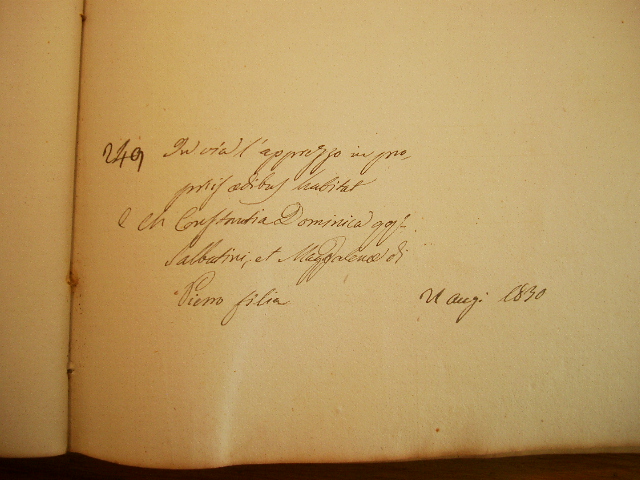 249 In via l'apprezzo in pro,
prijs ædibus habitat
Constantia Dominica qqs.
Sabbatini, et Magdalenæ di
Pierro filia 21 augi 1830